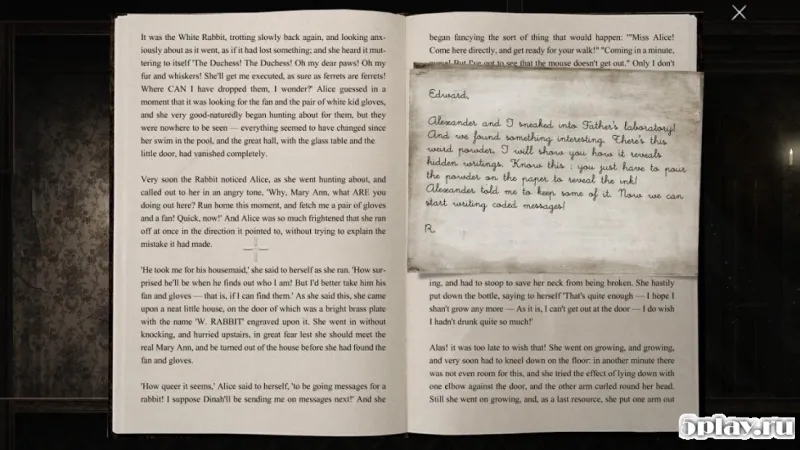 It was the White Rabbit, trotting slowly back again, and looking anx-
iously about as it went, as if it had lost something; and she heard it mut-
tering to itself 'The Duchess! The Duchess! Oh my dear paws! Oh my
fur and whiskers! She'll get me executed, as sure as ferrets are ferrets!
Where CAN I have dropped them, I wonder?' Alice guessed in a
moment that it was looking for the fan and the pair of white kid gloves,
and she very good-naturedly began hunting about for them, but they
were nowhere to be seen — everything seemed to have changed since
her swim in the pool, and the great hall, with the glass table and the
little door, had vanished completely.
Very soon the Rabbit noticed Alice, as she went hunting about, and
called out to her in an angry tone, 'Why, Mary Ann, what ARE you
doing out here? Run home this moment, and fetch me a pair of gloves
and a fan! Quick, now!' And Alice was so much frightened that she ran
off at once in the direction it pointed to, without trying to explain the
mistake it had made.
'He took me for his housemaid,' she said to herself as she ran. 'How sur-
prised he'll be when he finds out who I am! But I'd better take him his
fan and gloves — that is, if I can find them.' As she said this, she came
upon a neat little house, on the door of which was a bright brass plate
with the name 'W. RABBIT' engraved upon it. She went in without
knocking, and hurried upstairs, in great fear lest she should meet the
real Mary Ann, and be turned out of the house before she had found the
fan and gloves.
'How queer it seems,' Alice said to herself, 'to be going messages for a
rabbit! I suppose Dinah'll be sending me on messages next!' And she
began fancying the sort of thing that would happen: '"Miss Alice!
Come here directly, and get ready for your walk!" "Coming in a minute,
nurse! But I've got to see that the mouse doesn't get out." Only I don't
Edward,
Alexander and I sneaked into Father's laboratory!
And we found something interesting. There's this
weird powder, I will show you how it reveals
hidden writings. Know this : you just have to pour
the powder on the paper to reveal the ink!
Alexander told me to keep some of it. Now we can
start writing coded messages!
R.
ing, and had to stoop to save her neck from being broken. She hastily
put down the bottle, saying to herself 'That's quite enough — I hope I
shan't grow any more — As it is, I can't get out at the door — I do wish
I hadn't drunk quite so much!'
Alas! it was too late to wish that! She went on growing, and growing,
and very soon had to kneel down on the floor: in another minute there
was not even room for this, and she tried the effect of lying down with
one elbow against the door, and the other arm curled round her head.
Still she went on growing, and, as a last resource, she put one arm out
5play.ru